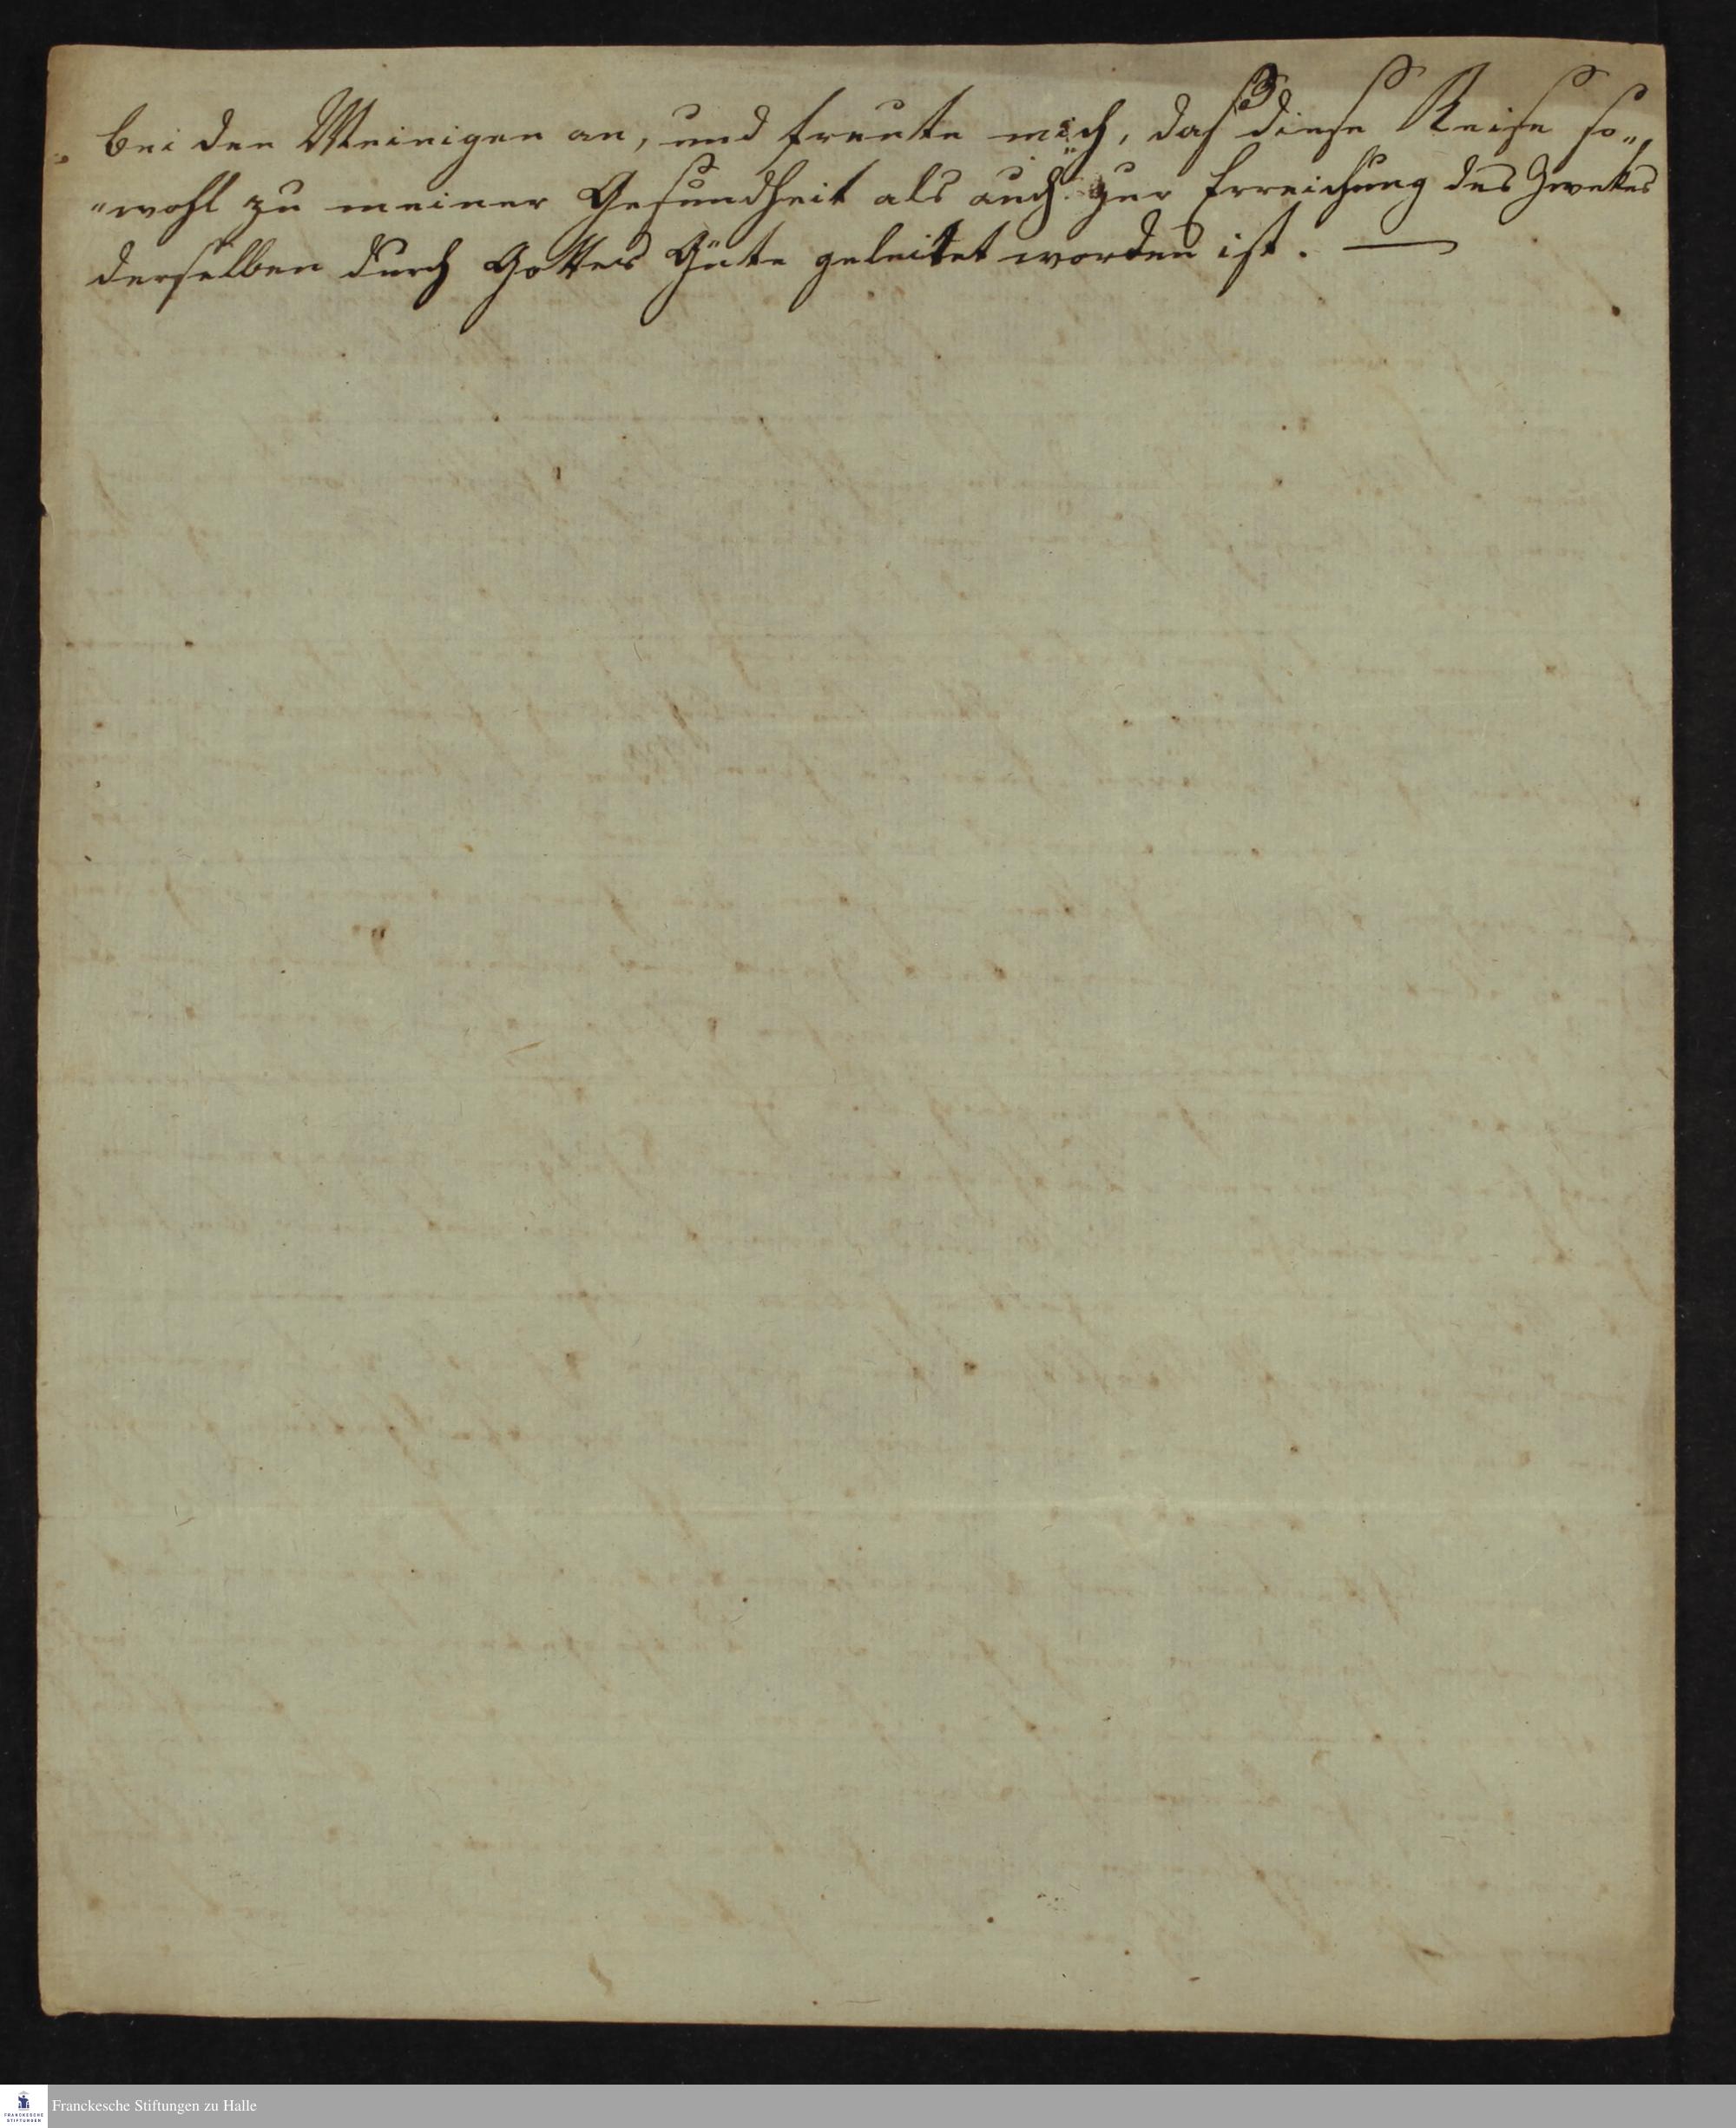 bei den Meinigen an, und freute mich, daß diese Reise so„
„wohl zu meiner Gesundheit als auch zur Erreichung des Zwekes
derselben durch Gottes Güte geleitet worden ist. —
FRANCKESCHE STIFTUNGEN
Franckesche Stiftungen zu Halle